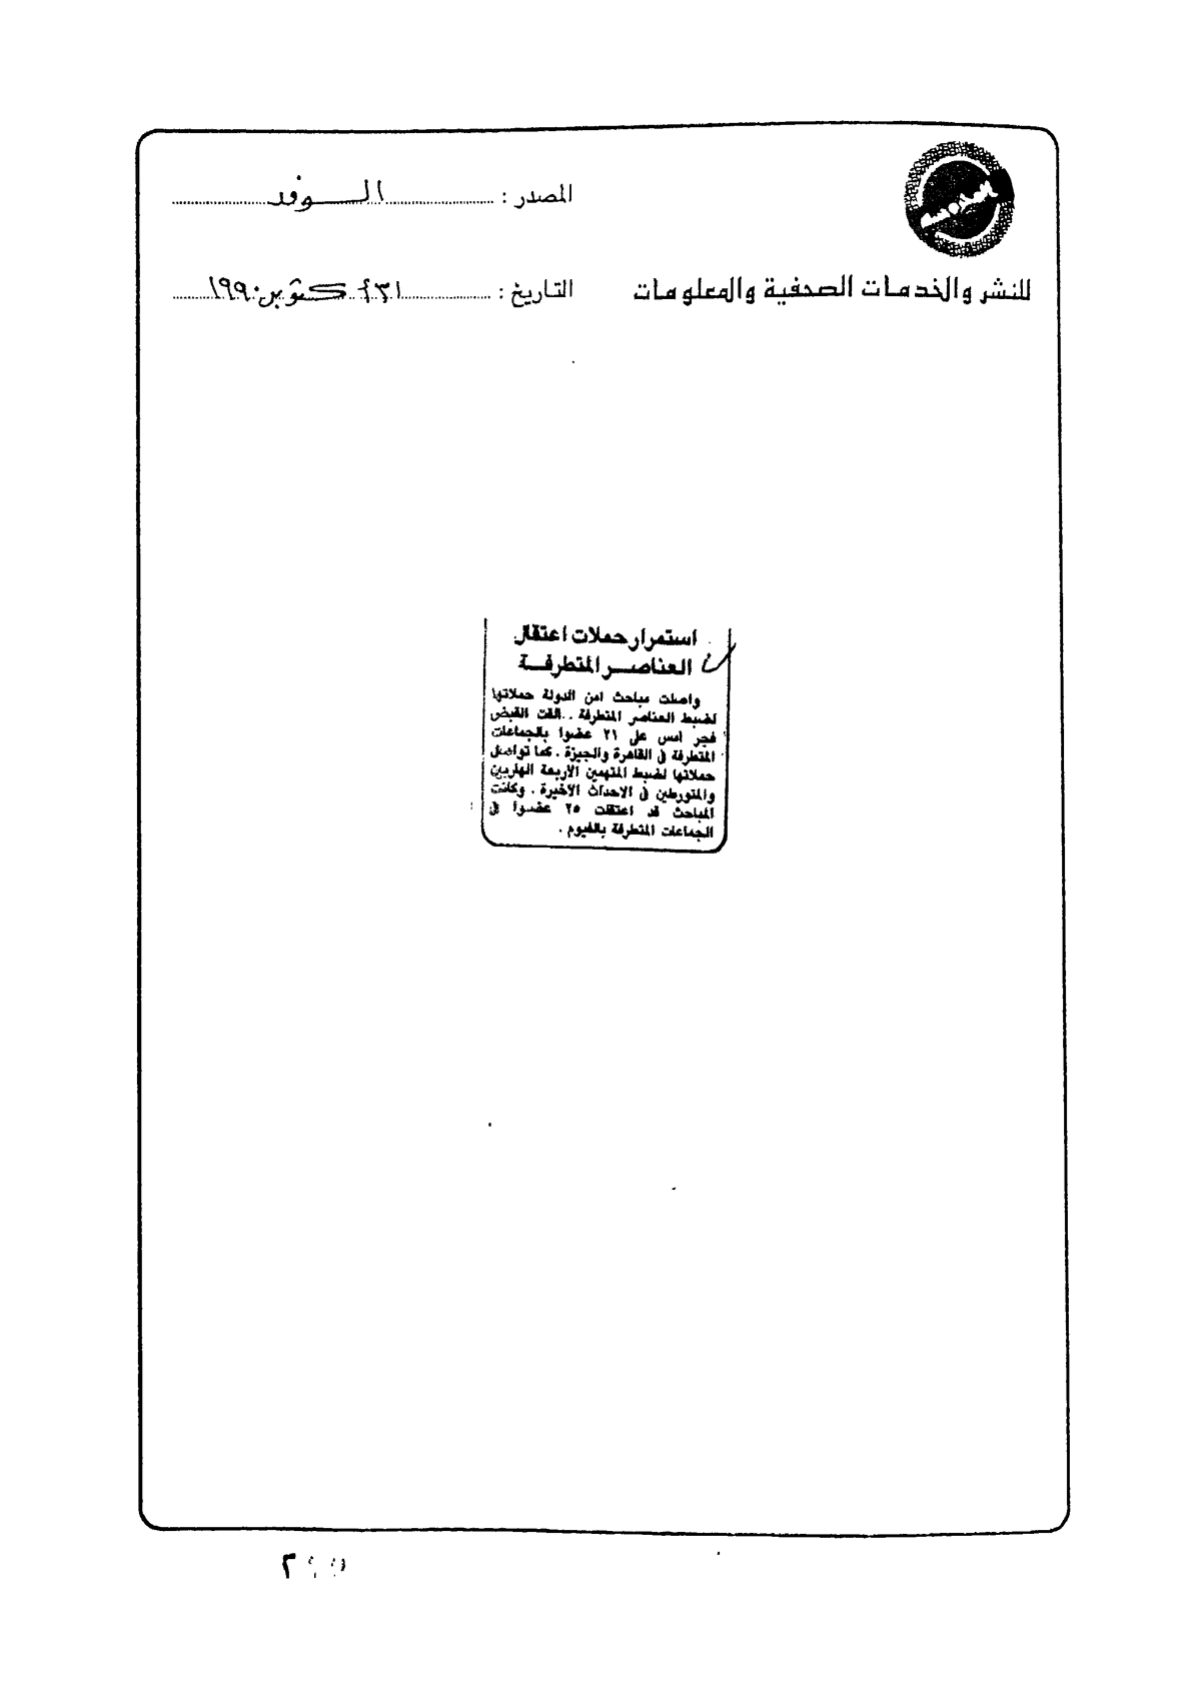 المصدر : الـــوفد
للنشر والخدمات الصحفية والمعلومات
التاريخ : ٣١ أكتوبر ١٩٩٠
استمرار حملات اعتقال
العناصر المتطرفة
واصلت مباحث امن الدولة حملاتها
لضبط العناصر المتطرفة .. القت القبض
فجر امس على ٢١ عضوا بالجماعات
المتطرفة فى القاهرة والجيزة . كما تواصل
حملاتها لضبط المتهمين الأربعة الهاربين
والمتورطين فى الاحداث الاخيرة . وكانت
المباحث قد اعتقلت ٢٥ عضوا فى
الجماعات المتطرفة بالفيوم .